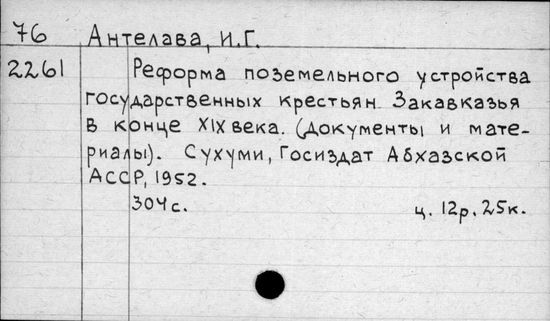 76 Антелава, И.Г.
2261 Реформа поземельного устройства
государственных крестьян Закавказья
в конце XIX века. (Документы и мате-
риалы). Сухуми, Госиздат Абхазской
АССР, 1952.
304 с. ц. 12р. 25к.